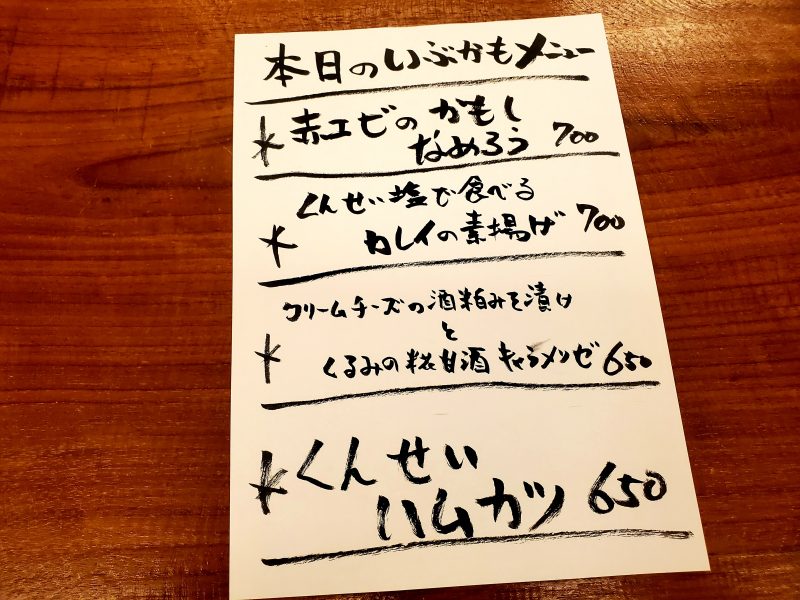 本日のいぶかもメニュー
*赤エビのかもし
なめろう 700
くんせい塩で食べる
*カレイの素揚げ 700
クリームチーズの酒粕みそ漬け
と
*くるみの糀甘酒キャラメリゼ 650
*くんせい
ハムカツ 650